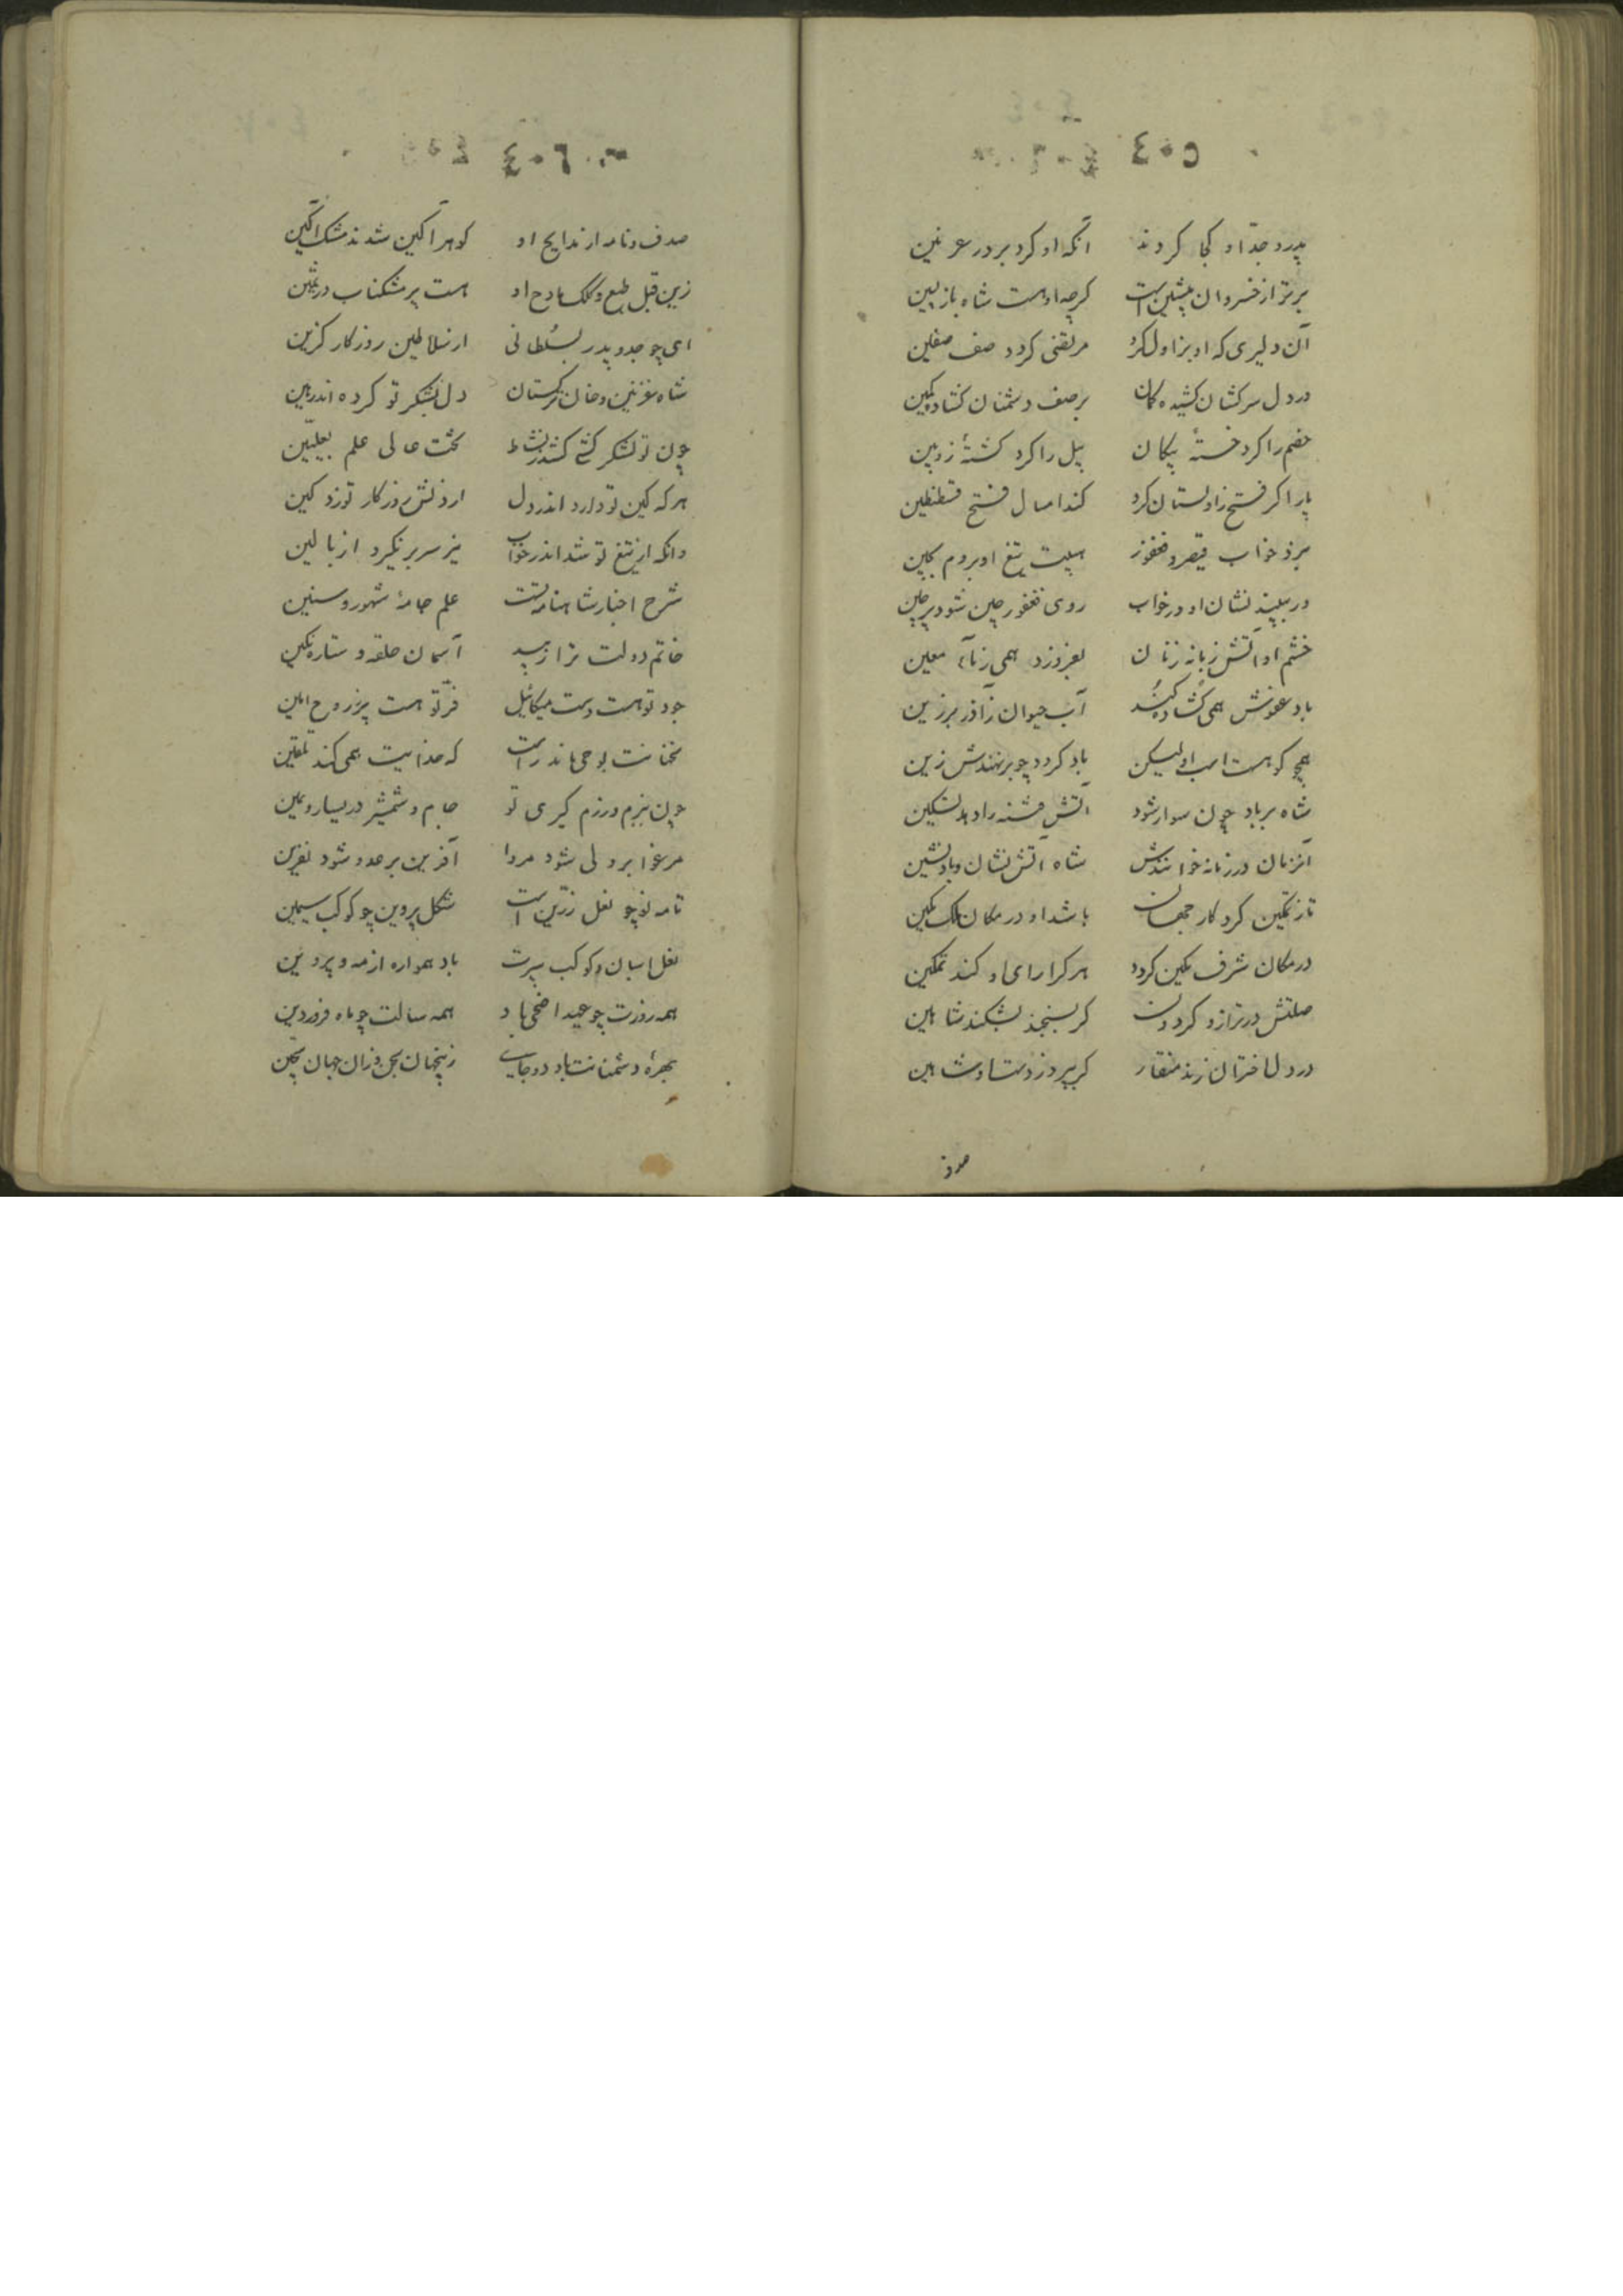 ٤٠٥
پدر و جدّ او کجا کردند آنکه او کرد بر در غزنین
برتر از خسروان پیشین است کرچه او هست شاه بازپسین
آن دلیری که او بزاول کرد مرتضی کرد در صف صفین
در دل سرکشان کشیده کمان بر صف دشمنان کشاد کمین
خصم را کرد خستهٔ پیکان پیل را کرد کشتهٔ زوبین
پار اکر فتح زاولستان کرد کند امسال فتح قسطنطین
برد خواب قیصر و فغفور هیبت تیغ او بروم و بچین
ور ببیند نشان او در خواب روی فغفور چین شود پر چین
خشم او آتش زبانه زنان بفروزد همی ز مآء معین
باد عفوش همی کشاده کند آب حیوان ز آذر برزین
همچو کوهست اسب او لیکن باد کردد چو برنهندش زین
شاه بر باد چون سوار شود آتش فتنه را دهد تسکین
آنزمان در زمانه خوانندش شاه آتش نشان و باد نشین
تا ز تمکین کردکار جهان باشد او در مکان ملک مکین
در مکان شرف مکین کردد هر کرا رای او کند تمکین
صلتش در ترازو کردون کر بسنجد بشکند شاهین
در دل اختران زند منقار کر بپرد ز دست او شاهین
صدف
٤٠٦
صدف و نامه از مدایح او کوهر آکین شدند مشک آکین
زین قبل طبع و کلک مادح او هست پر مشکناب و در ثمین
ای چو جد و پدر بسلطانی از سلاطین روزکار کزین
شاه غزنین و خان ترکستان دل بلشکر تو کرده اند رهین
چون تو لشکر کشی کشد بنشاط تخت عالی علم بعلیین
هر که کین تو دارد اندر دل از دلش روزکار توزد کین
وانکه از تیغ تو شد اندر خواب نیز سر بر نکیرد از بالین
شرح اخبار شاهنامه تست علم جامهٔ شهور و سنین
خاتم دولت ترا زیبد آسمان حلقه و ستاره نکین
جود تو هست دست میکائیل فرّ تو هست پرّ روح امین
سخنانت بوحی ماند راست که خدایت همی کند تلقین
چون ببزم و رزم کیری تو جام و شمشیر در یسار و یمین
مرغوا بر ولی شود مروا آفرین بر عدو شود نفرین
تا مه نو چو نعل زرّین است شکل پروین چو کوکب سیمین
نعل اسبان و کوکب سپرت باد همواره از مه و پروین
همه روزت چو عید اضحی باد همه سالت چو ماه فروردین
بهرهٔ دشمنانت باد دو جای زینجهان سجن و زان جهان سجّین